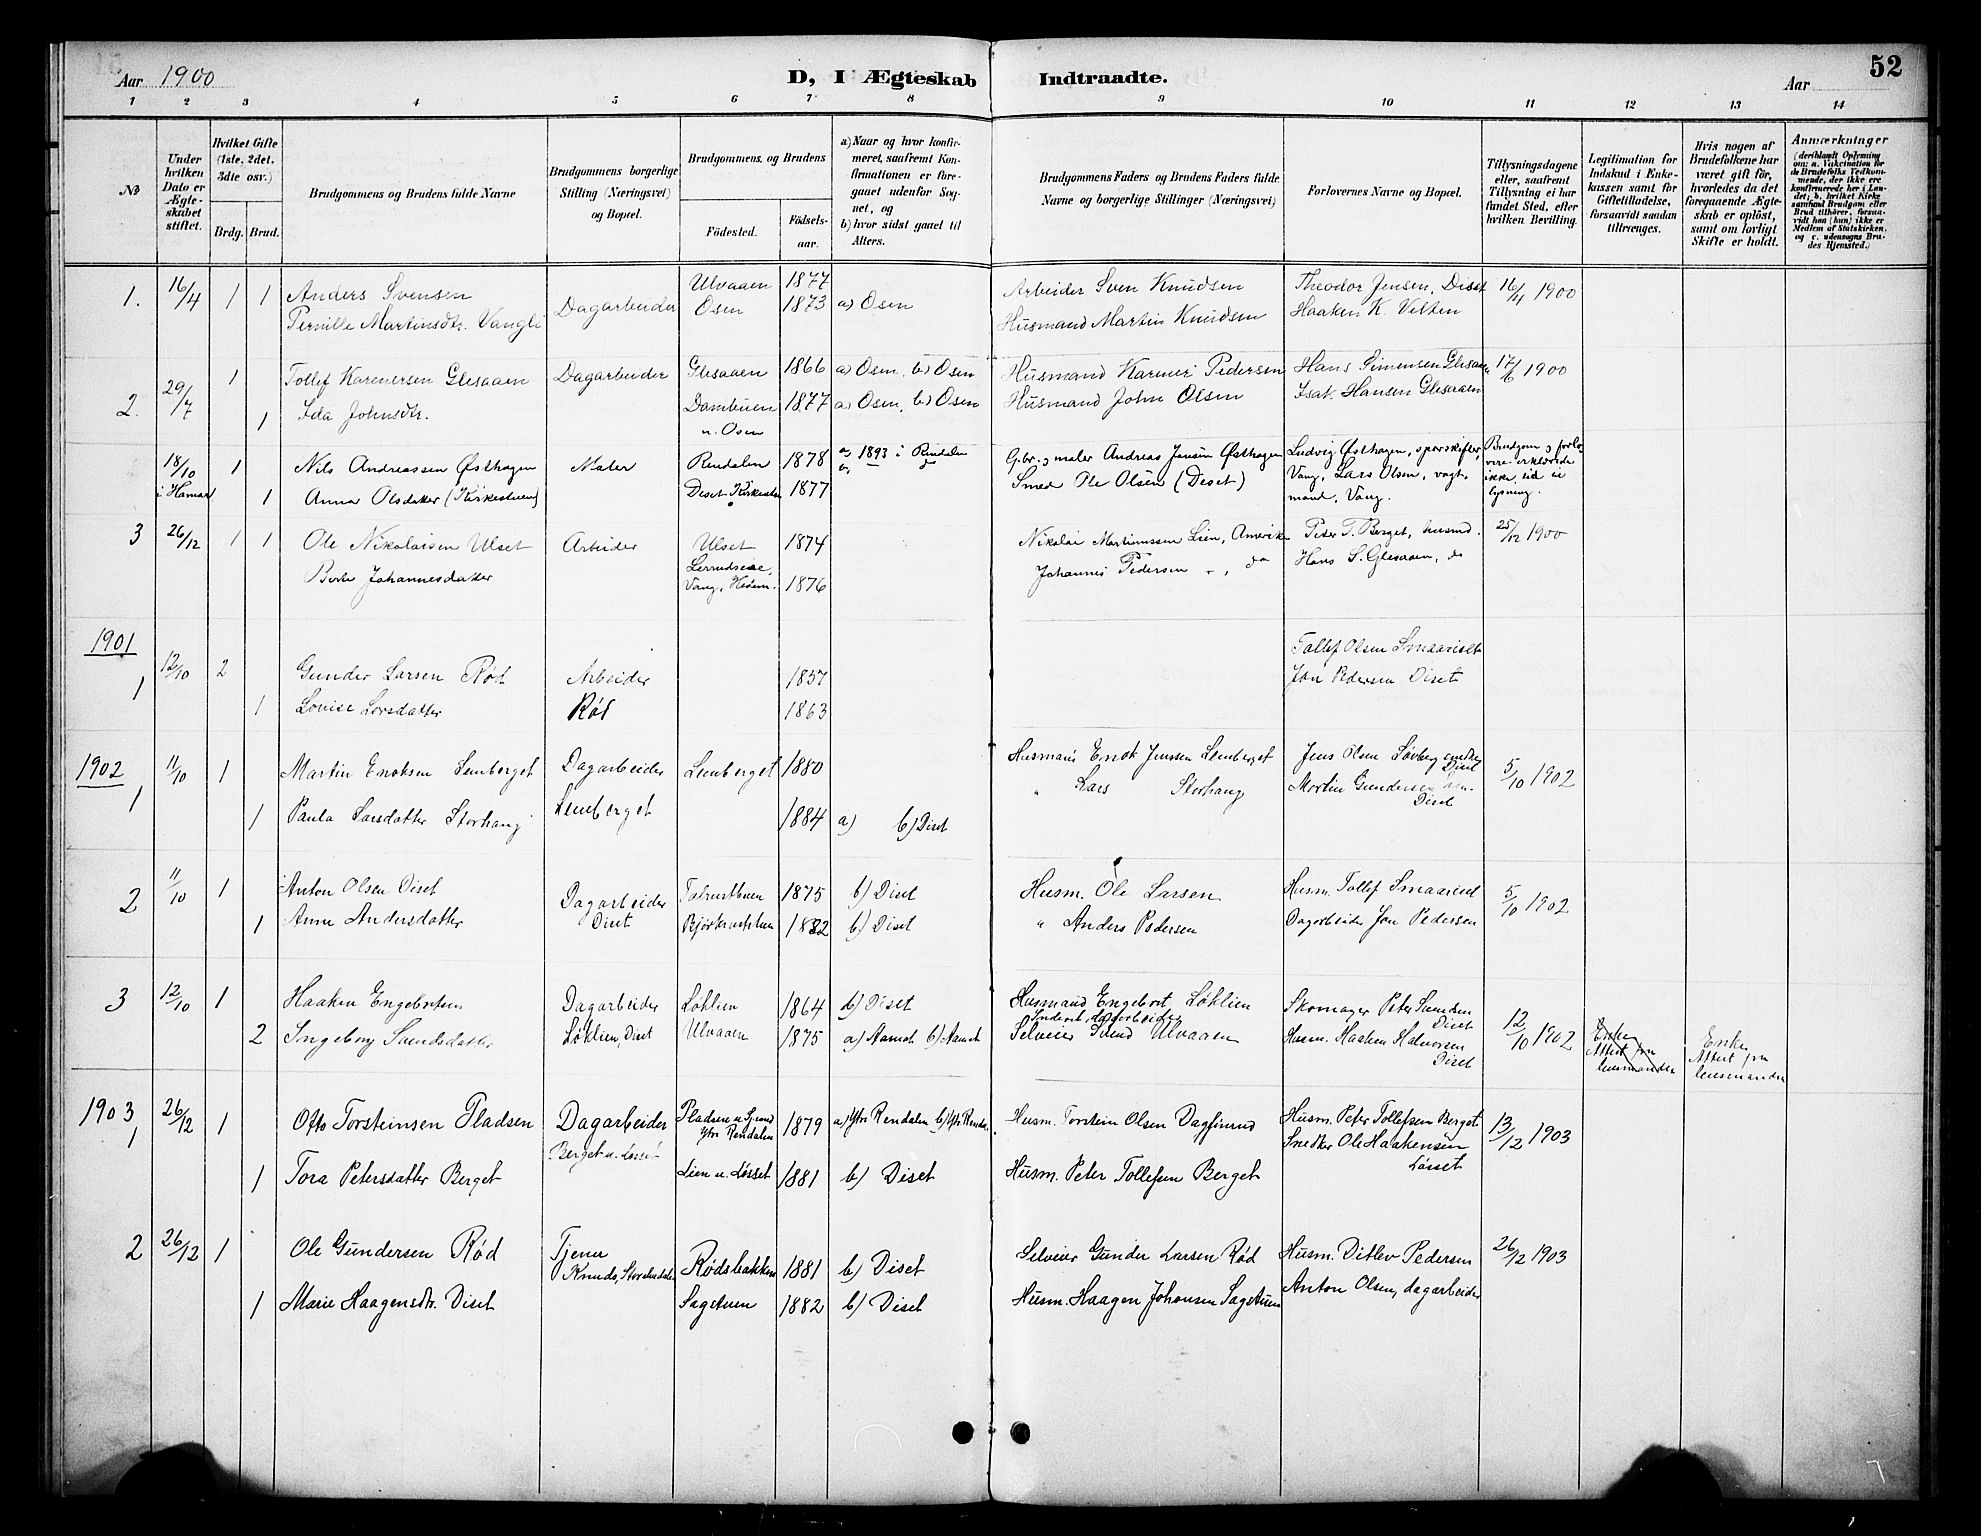 Aar 1900
D, I Ægteskab Indtraadte.
Aar
52
1 2 3 4 5 6 7 8 9 10 11 12 13 14
No
Under hvilken Dato er Ægteskabet stiftet.
Hvilket Gifte (1ste, 2det, 3die osv.)
Brdg. Brud.
Brudgommens og Brudens fulde Navne
Brudgommens borgerlige Stilling (Næringsvei) og Bopæl.
Brudgommens, og Brudens
Födested.
Födselsaar.
a) Naar og hvor konfirmeret, saafremt Konfirmationen er foregaaet udenför Sognet, og
b) hvor sidst gaaet til Alters.
Brudgommens Faders og Brudens Faders fulde Navne og borgerlige Stillinger (Næringsvei)
Forlovernes Navne og Bopæl.
Tillysningsdagene eller, saafremt Tillysning ei har fundet Sted, efter hvilken Bevilling.
Legitimation for Indskud i Enkekassen samt for Giftetilladelse, forsaavidt saadan tiltrænges.
Hvis nogen af Brudefolkene har været gift för, hvorledes da det foregaaende Ægteskab er oplöst, samt om lovligt Skifte er holdt.
Anmærkninger
(deriblandt Oplysning om: a. Vakcination for de Brudefolks Vedkommende, der ikke ere konfirmerede her i Landet; b. hvilket Kirkesamfund Brudgom eller Brud tilhörer, forsaavidt han (hun) ikke er Medlem af Statskirken, og c. udensogns Brudes Hjemsted.)
1. 16/4 1 1 Anders Svensen Dagarbeider Ulvaaen 1877 Arbeider Sven Knudsen Theodor Jensen, Diset 16/4 1900
Pernille Martinsdtr. Vangli Osen 1873 a) Osen Husmand Martin Knudsen Haaken K. Velten
2. 29/7 1 Tollef Karenersen Glesaaen Dagarbeider Glesaaen 1866 a) Osen. b) Osen Husmand Karener Pedersen Hans Simensen Glesaaen 17/6 1900
1 Ida Johnsdtr. Dambuen n. Osen 1877 a) Osen, b) Osen Husmand John Olsen Isak Hansen Glesaaen
18/10 i Hamar 1 Nils Andreassen Østhagen Maler Rendalen 1878 a) 1893 i Rendalen b) do G.br. og maler Andreas Jensen Østhagen Ludvig Østhagen, sporskifter, Vang, Lars Olsen, vogtmand, Vang. Brudgom og forlovere erklærede ikke tid til lysning.
1 Anna Olsdatter (Kirkestuen) Diset Kirkestu 1877 Smed Ole Olsen (Diset)
3 26/12 1 1 Ole Nikolaisen Ulset Arbeider Ulset 1874 Nikolai Martinussen Lien, Amerika Peter T. Berget, husmd. 25/12 1900
Berte Johannesdatter Vang, Hedem. 1876 Johannes Pedersen -, do Hans S. Glesaaen, do
1901
1 12/10 2 Gunder Larsen Rød Arbeider 1857 Tollef Olsen Smaariset
1 Lovise Larsdatter Rød 1863 Jon Pedersen Diset
1902
1 11/10 1 Martin Eriksen Lemberget Dagarbeider Lemberget 1880 Husmand Erik Jensen Lemberget Jens Olsen Løvberg snedker Diset 5/10 1902
1 Paula Larsdatter Storhaug Lemberget 1884 a) b) Diset " Lars Storhaug Martin Gundersen Diset
2 11/10 1 Anton Olsen Diset Dagarbeider 1875 b) Diset Husm. Ole Larsen Husm. Tollef Smaariset 5/10 1902
1 Anne Andersdatter Diset 1882 b) Diset " Anders Pedersen Dagarbeider Jon Pedersen
3 12/10 1 Haaken Engebretsen Dagarbeider Løhlien 1864 b) Diset Husmand Engebret Løhlien Skomager Peter Svendsen Diset 12/10 1902
2 Ingeborg Svendsdatter Løhlien, Diset Ulvaaen 1875 a) Aamot b) Aamot Selveier Svend Ulvaaen Husm. Haaken Halvorsen Diset Enke, Attest fra lensmanden Enke, Attest fra lensmanden
1903
1 26/12 1 Otto Torsteinsen Pladsen Dagarbeider Pladsen u. Grund Ytre Rendalen 1879 a) Ytre Rendalen b) Ytre Rendal. Husm. Torstein Olsen Dagfinrud Husm. Peter Tollefsen Berget 13/12 1903
Berget u. Løsset Snedker Ole Haakensen Løsset
1 Tora Petersdatter Berget Lien u. Løsset 1881 b) Diset Husm. Peter Tollefsen Berget
2 26/12 1 Ole Gundersen Rød Tjener Rødsbakken 1881 b) Diset Selveier Gunder Larsen Rød Husm. Ditlev Pedersen 26/12 1903
1 Marie Haagensdtr. Diset Sagstuen 1882 b) Diset Husm. Haagen Johansen Sagstuen Anton Olsen, dagarbeider